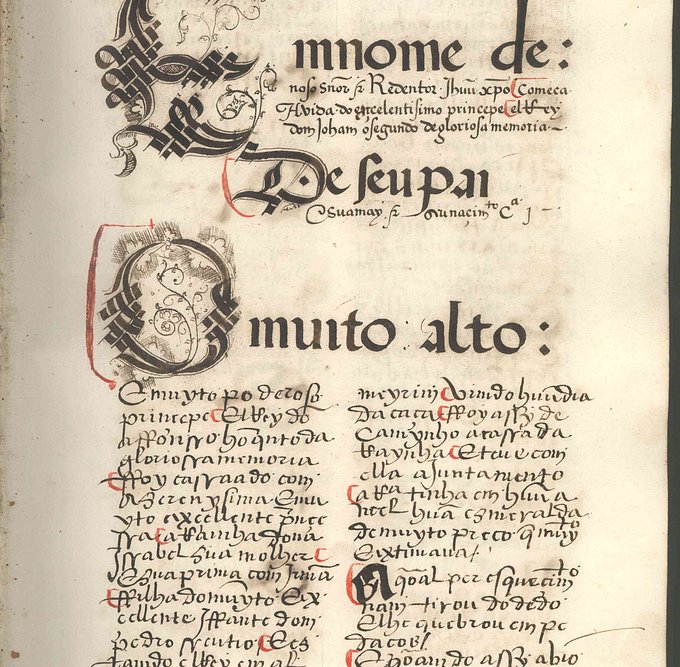 Em nome de:
noso snõr & Redentor Jhuũ xp̃o Comeca
A vida do excelentisimo princepe el Rey
dom Joham o segundo de gloriosa memoria
De seu pai
E sua may, & seu naçimto Ca j
O muito alto:
E muyto poderoso
princepe El Rey dõ
affonsso ho quinto da
gloriossa memoria
ffoy cassaado com
a Serenysima E mu
yto eixcellente prĩce
ssa a Rainha dona
Issabel sua molher
E sua prima com Irmãa
ffilha do muyto Eix
cellente Iffante dom
pedro sseu tio E es
tando el Rey em
meyrim Vimdo huũ dia
da caca ffoy assy de
Camynho a cassa da
Raynha E teue com
ella ajuntamento
E a Ra tinha em huũ a
nell huũa esmeralda
de muyto preco q muyto
Eixtimaua
A qoal per esquecimto
nam tirou do dedo
E lhe quebrou em pe
dacos
E q̃oando assy a vio